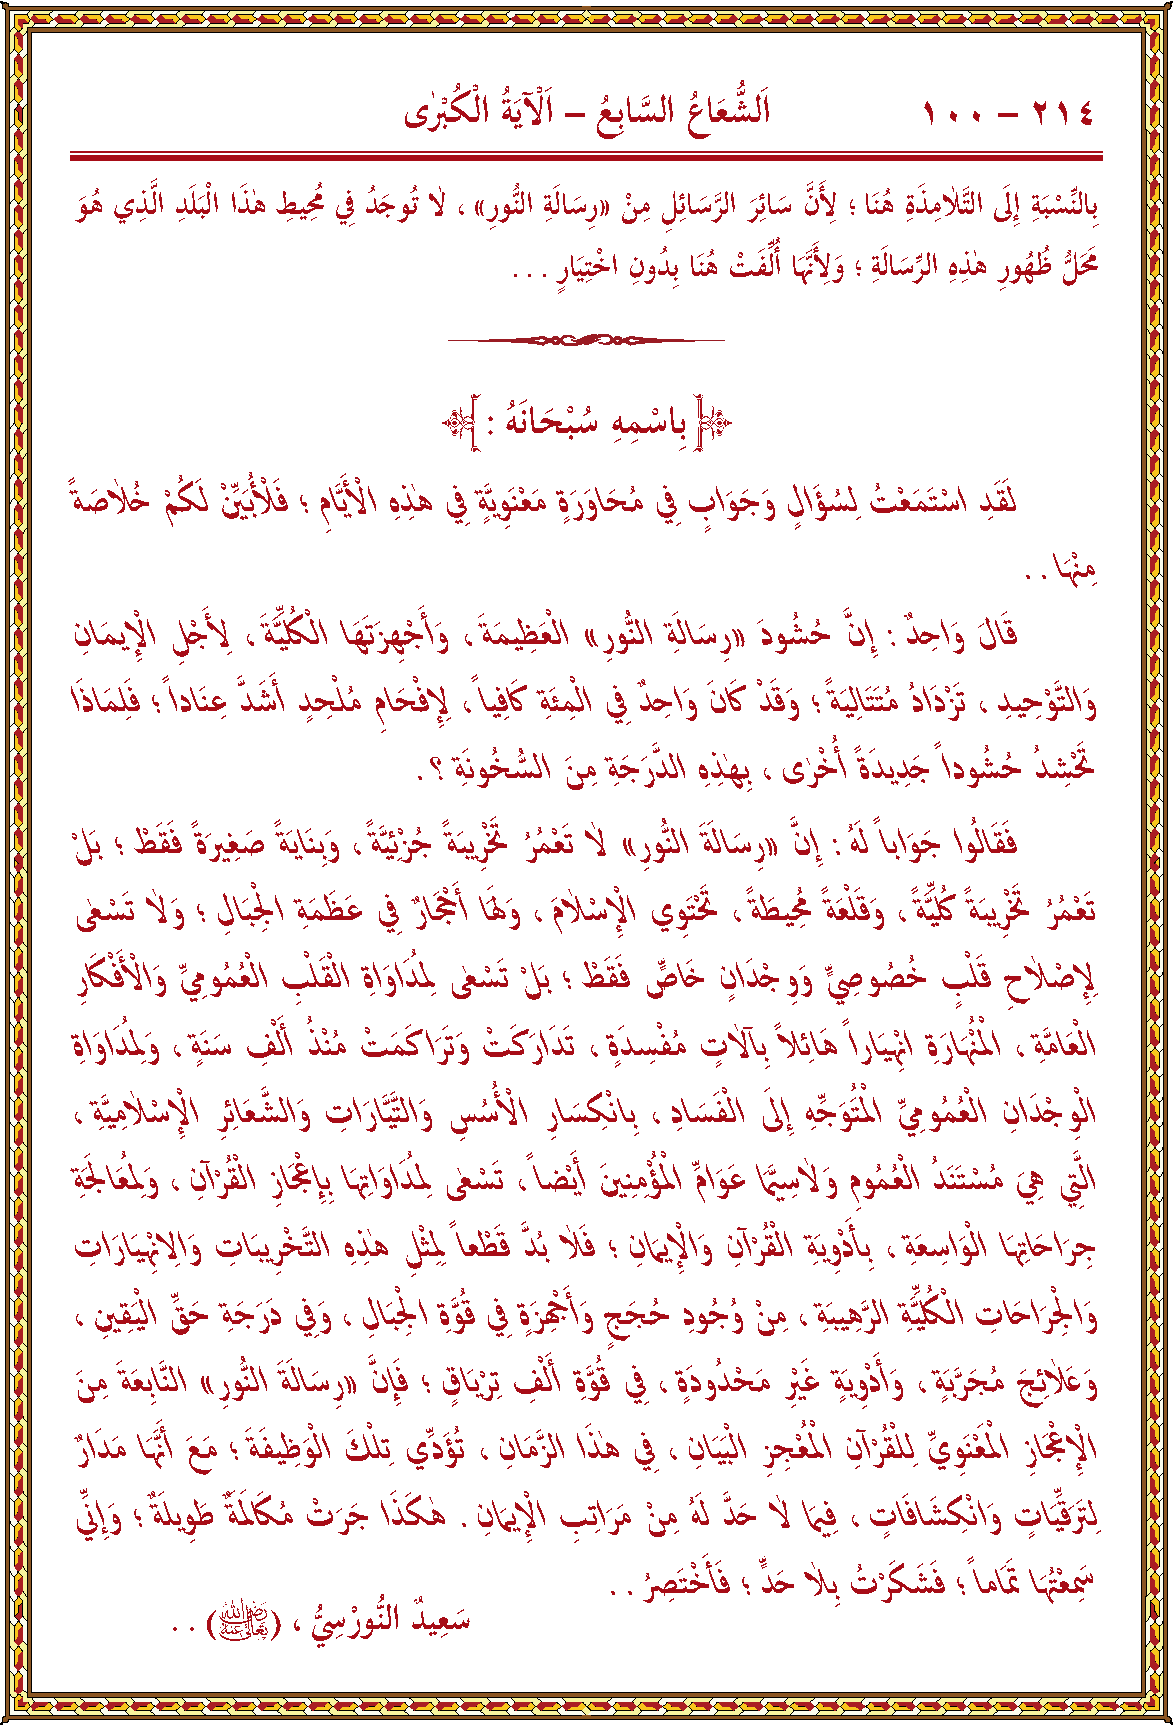 ٢١٤ – ١٠٠ اَلشُّعَاعُ السَّابِعُ – اَلْآيَةُ الْكُبْرٰى
بِالنِّسْبَةِ إِلَى التَّلَامِذَةِ هُنَا ؛ لِأَنَّ سَائِرَ الرَّسَائِلِ مِنْ «رِسَالَةِ النُّورِ» ، لَا تُوجَدُ فِي مُحِيطِ هٰذَا الْبَلَدِ الَّذِي هُوَ
مَحَلُّ ظُهُورِ هٰذِهِ الرِّسَالَةِ ؛ وَلِأَنَّهَا أُلِّفَتْ هُنَا بِدُونِ اخْتِيَارٍ . . .
بِاسْمِهِ سُبْحَانَهُ :
لَقَدِ اسْتَمَعْتُ لِسُؤَالٍ وَجَوَابٍ فِي مُحَاوَرَةٍ مَعْنَوِيَّةٍ فِي هٰذِهِ الْأَيَّامِ ؛ فَلْأُبَيِّنْ لَكُمْ خُلَاصَةً
مِنْهَا . .
قَالَ وَاحِدٌ : إِنَّ حُشُودَ «رِسَالَةِ النُّورِ» الْعَظِيمَةَ ، وَأَجْهِزَتَهَا الْكُلِّيَّةَ ، لِأَجْلِ الْإِيمَانِ
وَالتَّوْحِيدِ ، تَزْدَادُ مُتَتَالِيَةً ؛ وَقَدْ كَانَ وَاحِدٌ فِي الْمِئَةِ كَافِياً ، لِإِفْحَامِ مُلْحِدٍ أَشَدَّ عِنَاداً ؛ فَلِمَاذَا
تَحْشِدُ حُشُوداً جَدِيدَةً أُخْرٰى ، بِهٰذِهِ الدَّرَجَةِ مِنَ السُّخُونَةِ ؟ .
فَقَالُوا جَوَاباً لَهُ : إِنَّ «رِسَالَةَ النُّورِ» لَا تَعْمُرُ تَخْرِيبَةً جُزْئِيَّةً ، وَبِنَايَةً صَغِيرَةً فَقَطْ ؛ بَلْ
تَعْمُرُ تَخْرِيبَةً كُلِّيَّةً ، وَقَلْعَةً مُحِيطَةً ، تَحْتَوِي الْإِسْلَامَ ، وَلَهَا أَحْجَارٌ فِي عَظَمَةِ الْجِبَالِ ؛ وَلَا تَسْعٰى
لِإِصْلَاحِ قَلْبٍ خُصُوصِيٍّ وَوِجْدَانٍ خَاصٍّ فَقَطْ ؛ بَلْ تَسْعٰى لِمُدَاوَاةِ الْقَلْبِ الْعُمُومِيِّ وَالْأَفْكَارِ
الْعَامَّةِ ، الْمُنْهَارَةِ انْهِيَاراً هَائِلاً بِآلَاتٍ مُفْسِدَةٍ ، تَدَارَكَتْ وَتَرَاكَمَتْ مُنْذُ أَلْفِ سَنَةٍ ، وَلِمُدَاوَاةِ
الْوِجْدَانِ الْعُمُومِيِّ الْمُتَوَجِّهِ إِلَى الْفَسَادِ ، بِانْكِسَارِ الْأُسُسِ وَالتَّيَّارَاتِ وَالشَّعَائِرِ الْإِسْلَامِيَّةِ ،
الَّتِي هِيَ مُسْتَنَدُ الْعُمُومِ وَلَاسِيَّمَا عَوَامِّ الْمُؤْمِنِينَ أَيْضاً ، تَسْعٰى لِمُدَاوَاتِهَا بِإِعْجَازِ الْقُرْآنِ ، وَلِمُعَالَجَةِ
جِرَاحَاتِهَا الْوَاسِعَةِ ، بِأَدْوِيَةِ الْقُرْآنِ وَالْإِيمَانِ ؛ فَلَا بُدَّ قَطْعاً لِمِثْلِ هٰذِهِ التَّخْرِيبَاتِ وَالِانْهِيَارَاتِ
وَالْجِرَاحَاتِ الْكُلِّيَّةِ الرَّهِيبَةِ ، مِنْ وُجُودِ حُجَجٍ وَأَجْهِزَةٍ فِي قُوَّةِ الْجِبَالِ ، وَفِي دَرَجَةِ حَقِّ الْيَقِينِ ،
وَعَلَائِجَ مُجَرَّبَةٍ ، وَأَدْوِيَةٍ غَيْرِ مَحْدُودَةٍ ، فِي قُوَّةِ أَلْفِ تِرْيَاقٍ ؛ فَإِنَّ «رِسَالَةَ النُّورِ» النَّابِعَةَ مِنَ
الْإِعْجَازِ الْمَعْنَوِيِّ لِلْقُرْآنِ الْمُعْجِزِ الْبَيَانِ ، فِي هٰذَا الزَّمَانِ ، تُؤَدِّي تِلْكَ الْوَظِيفَةَ ؛ مَعَ أَنَّهَا مَدَارٌ
لِتَرَقِّيَاتٍ وَانْكِشَافَاتٍ ، فِيمَا لَا حَدَّ لَهُ مِنْ مَرَاتِبِ الْإِيمَانِ . هٰكَذَا جَرَتْ مُكَالَمَةٌ طَوِيلَةٌ ؛ وَإِنِّي
سَمِعْتُهَا تَمَاماً ؛ فَشَكَرْتُ بِلَا حَدٍّ ؛ فَأَخْتَصِرُ . .
سَعِيدٌ النُّورْسِيُّ ، (رضي الله تعالى عنه) . .